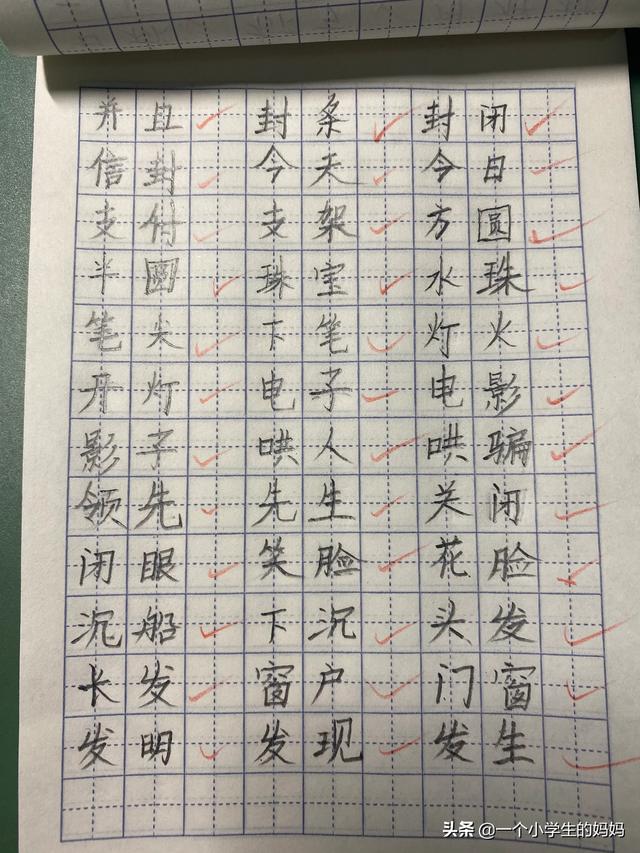 并且 封条 封闭
信封 今天 今日
支付 支架 方圆
半圆 珠宝 水珠
笔尖 下笔 灯火
开灯 电子 电影
影子 哄人 哄骗
领先 先生 关闭
闭眼 笑脸 花脸
沉船 下沉 头发
长发 窗户 门窗
发明 发现 发生
头条 @一个小学生的妈妈